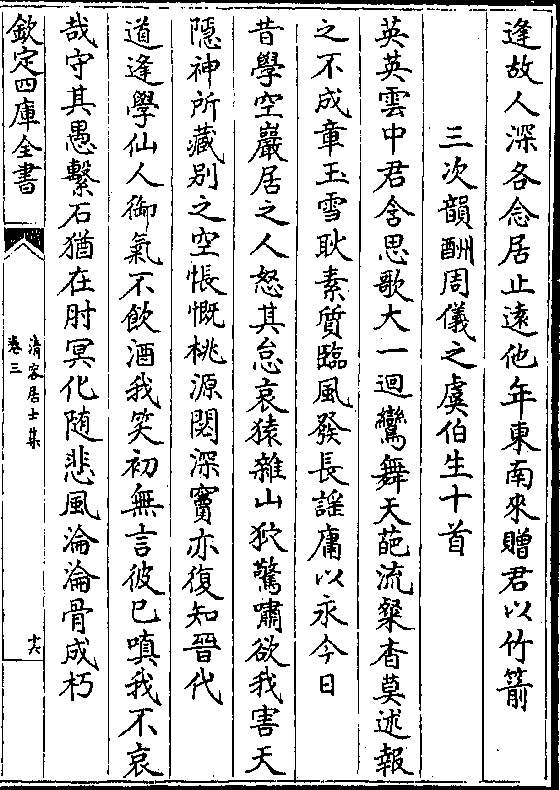 逢故人深各念居止遠他年東南來贈君以竹箭
三次韻酬周儀之虞伯生十首
英英雲中君含思歌大一迴鸞舞天葩流粲杳莫述報
之不成章玉雪耿素質臨風發長謡庸以永今日
昔學空巖居之人怒其怠哀猿雜山狖驚嘯欲我害天
隱神所藏别之空悵慨桃源閟深竇亦復知晉代
道逢學仙人御氣不飲酒我笑初無言彼已嗔我不哀
哉守其愚繫石猶在肘冥化随悲風淪淪骨成朽
欽定四庫全書
清容居士集
卷三
十六